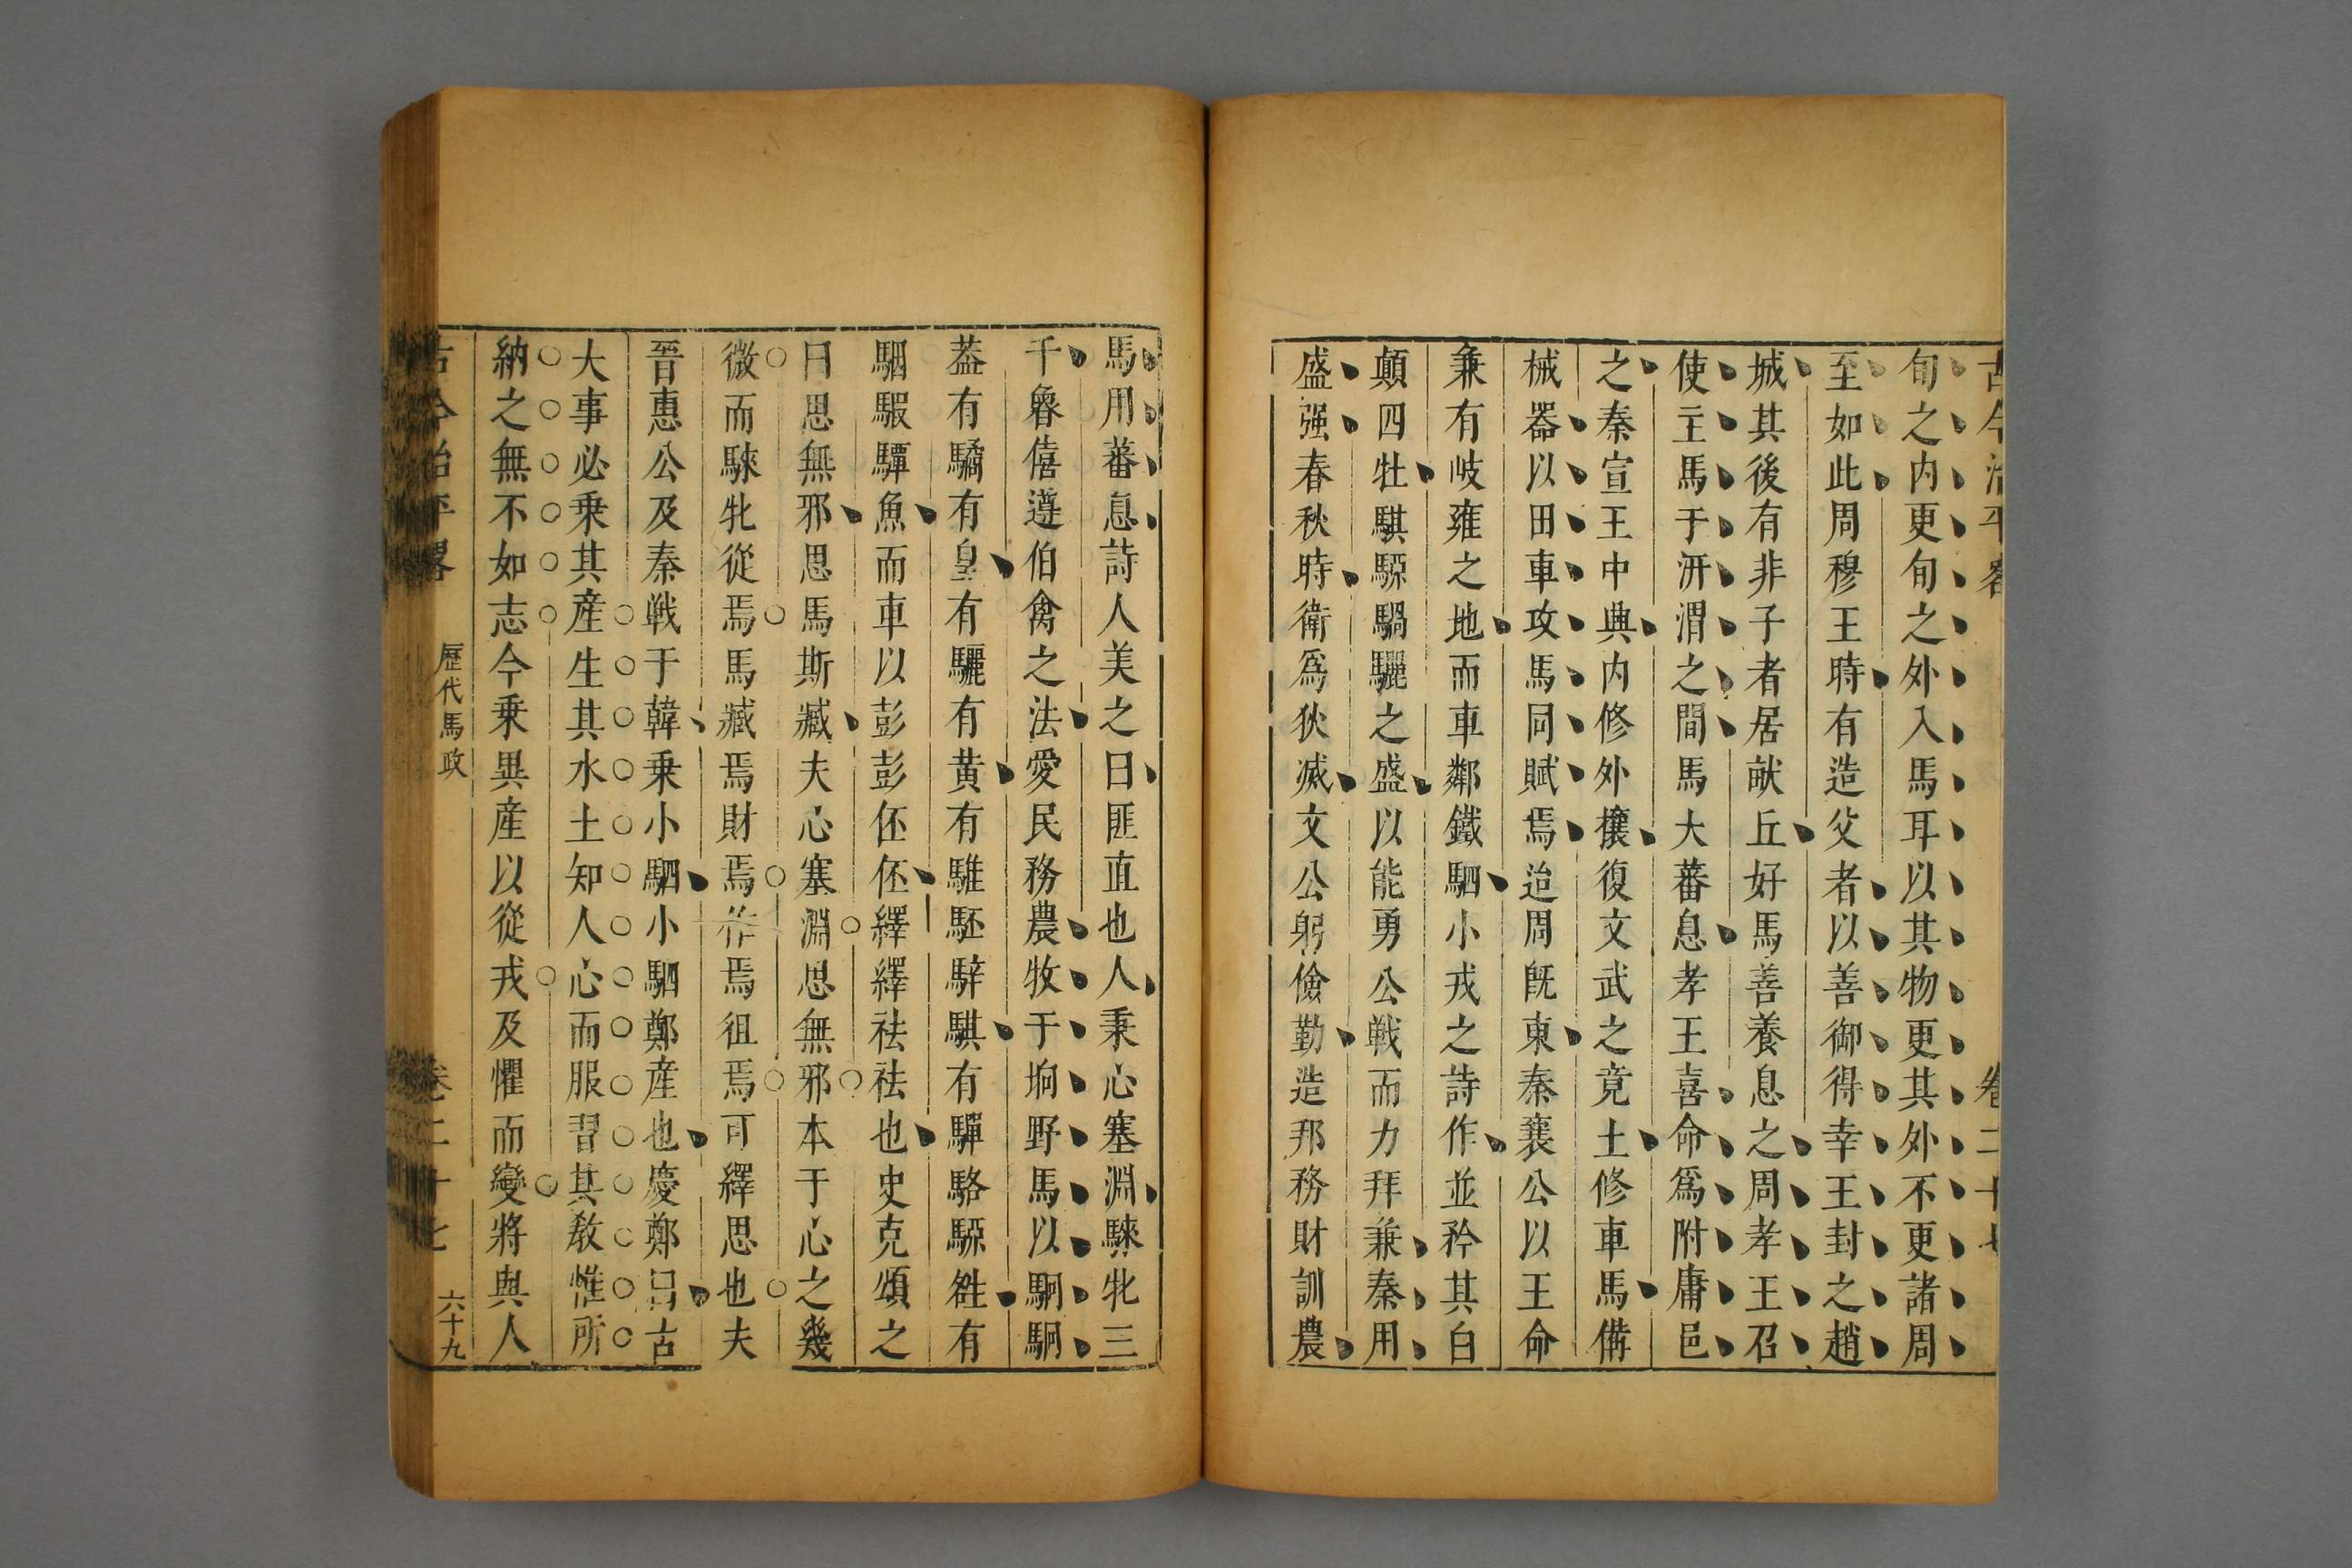 古今治平畧 卷二十七
旬之内更旬之外入馬耳以其物更其外不更諸周
至如此周穆王時有造父者以善御得幸王封之趙
城其後有非子者居献丘好馬善養息之周孝王召
使主馬于汧渭之間馬大蕃息孝王喜命爲附庸邑
之秦宣王中典内修外攘復文武之竟土修車馬備
械器以田車攻馬同賦焉迨周旣東秦襄公以王命
兼有岐雍之地而車鄰鐵駟小戎之詩作並矜其白
顛四牡騏騵騧驪之盛以能勇公戰而力拜兼秦用
盛强春秋時衛爲狄滅文公躬儉勤造邦務財訓農
馬用蕃息詩人美之曰匪直也人秉心塞淵騋牝三
千魯僖遵伯禽之法愛民務農牧于坰野馬以駉駉
葢有驈有皇有驪有黄有騅駓騂騏有驒駱騵雒有
駰騢驔魚而車以彭彭伾伾繹繹祛祛也史克頌之
曰思無邪思馬斯臧夫心塞淵思無邪本于心之幾
微而騋牝從焉馬臧焉財焉作焉徂焉可繹思也夫
晉惠公及秦戰于韓乗小駟小駟鄭産也慶鄭曰古
大事必乗其産生其水土知人心而服習其教惟所
納之無不如志今乗異産以從戎及懼而變將與人
古今治平畧 歷代馬政 卷二十七 六十九